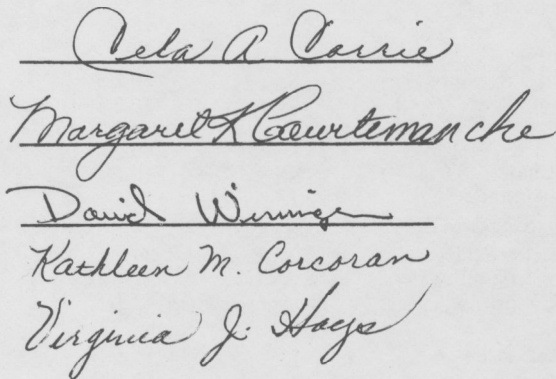 Cela A. Corrie
Margaret K Courtemanche
David
Kathleen M. Corcoran
Virginia J. Hays